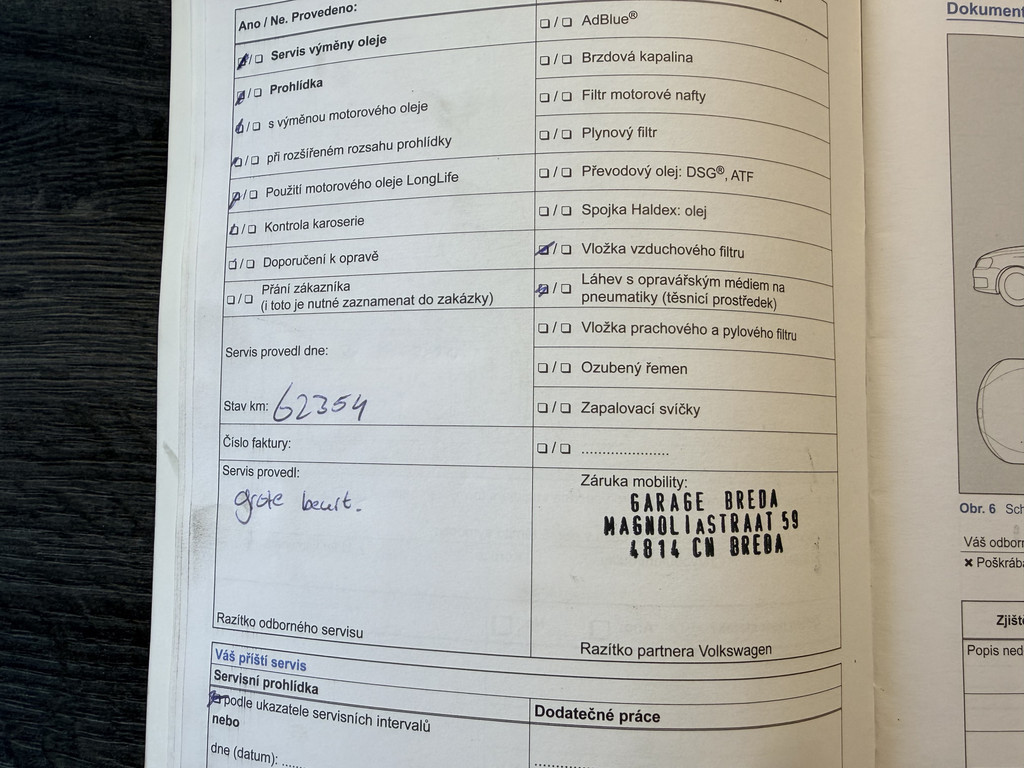 Ano / Ne. Provedeno:
❑/❑ Servis výměny oleje
❑/❑ Prohlídka
❑/❑ s výměnou motorového oleje
❑/❑ při rozšířeném rozsahu prohlídky
❑/❑ Použití motorového oleje LongLife
❑/❑ Kontrola karoserie
❑/❑ Doporučení k opravě
❑/❑ Přání zákazníka
(i toto je nutné zaznamenat do zakázky)
Servis provedl dne:
Stav km: 62354
Číslo faktury:
Servis provedl:
grote beurt.
Razítko odborného servisu
❑/❑ AdBlue®
❑/❑ Brzdová kapalina
❑/❑ Filtr motorové nafty
❑/❑ Plynový filtr
❑/❑ Převodový olej: DSG®, ATF
❑/❑ Spojka Haldex: olej
❑/❑ Vložka vzduchového filtru
❑/❑ Láhev s opravářským médiem na
pneumatiky (těsnicí prostředek)
❑/❑ Vložka prachového a pylového filtru
❑/❑ Ozubený řemen
❑/❑ Zapalovací svíčky
❑/❑ ......................
Záruka mobility:
GARAGE BREDA
MAGNOLIASTRAAT 59
4814 CN BREDA
Razítko partnera Volkswagen
Váš příští servis
Servisní prohlídka
❑ podle ukazatele servisních intervalů
nebo
dne (datum): ......
Dodatečné práce
Dokument
Obr. 6 Sch
Váš odborn
× Poškrába
Zjiště
Popis ned